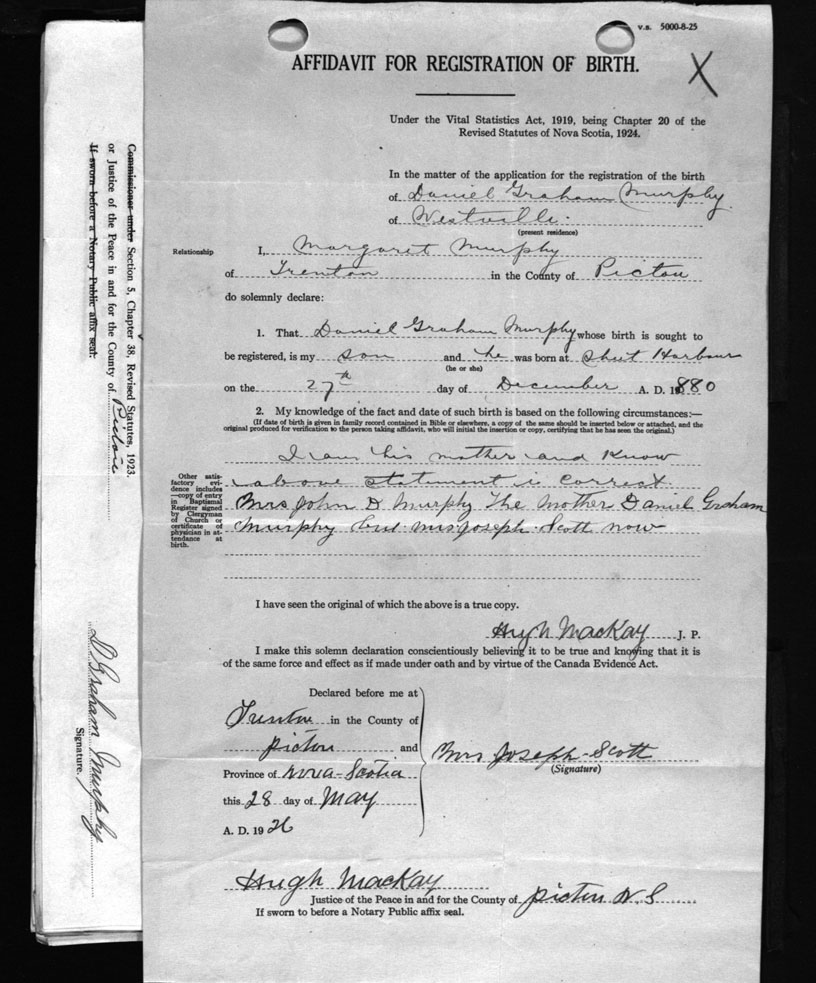 v.s. 5000-8-25
AFFIDAVIT FOR REGISTRATION OF BIRTH.
X
Under the Vital Statistics Act, 1919, being Chapter 20 of the
Revised Statutes of Nova Scotia, 1924.
In the matter of the application for the registration of the birth
of Daniel Graham Murphy
of Westville.
(present residence)
Relationship
I, Margaret Murphy
of Trenton in the County of Pictou
do solemnly declare:
1. That Daniel Graham Murphy whose birth is sought to
be registered, is my son and he was born at Sheet Harbour
(he or she)
on the 27th day of December A. D. 1880
2. My knowledge of the fact and date of such birth is based on the following circumstances:—
(If date of birth is given in family record contained in Bible or elsewhere, a copy of the same should be inserted below or attached, and the
original produced for verification to the person taking affidavit, who will initial the insertion or copy, certifying that he has seen the original.)
I am his mother and know
above statement is correct
Mrs John D Murphy The Mother Daniel Graham
Murphy but Mrs Joseph Scott now
Other satis-
factory evi-
dence includes
—copy of entry
in Baptismal
Register signed
by Clergyman
of Church or
certificate of
physician in at-
tendance at
birth.
I have seen the original of which the above is a true copy.
Hugh MacKay J. P.
I make this solemn declaration conscientiously believing it to be true and knowing that it is
of the same force and effect as if made under oath and by virtue of the Canada Evidence Act.
Declared before me at
Trenton in the County of
Pictou and
Province of Nova Scotia
this 28 day of May
A. D. 1926
Mrs Joseph Scott
(Signature)
Hugh MacKay
Justice of the Peace in and for the County of Pictou N. S
If sworn to before a Notary Public affix seal.
Commissioner under Section 5, Chapter 38, Revised Statutes, 1923.
or Justice of the Peace in and for the County of Pictou
If sworn before a Notary Public affix seal.
D Graham Murphy
Signature.